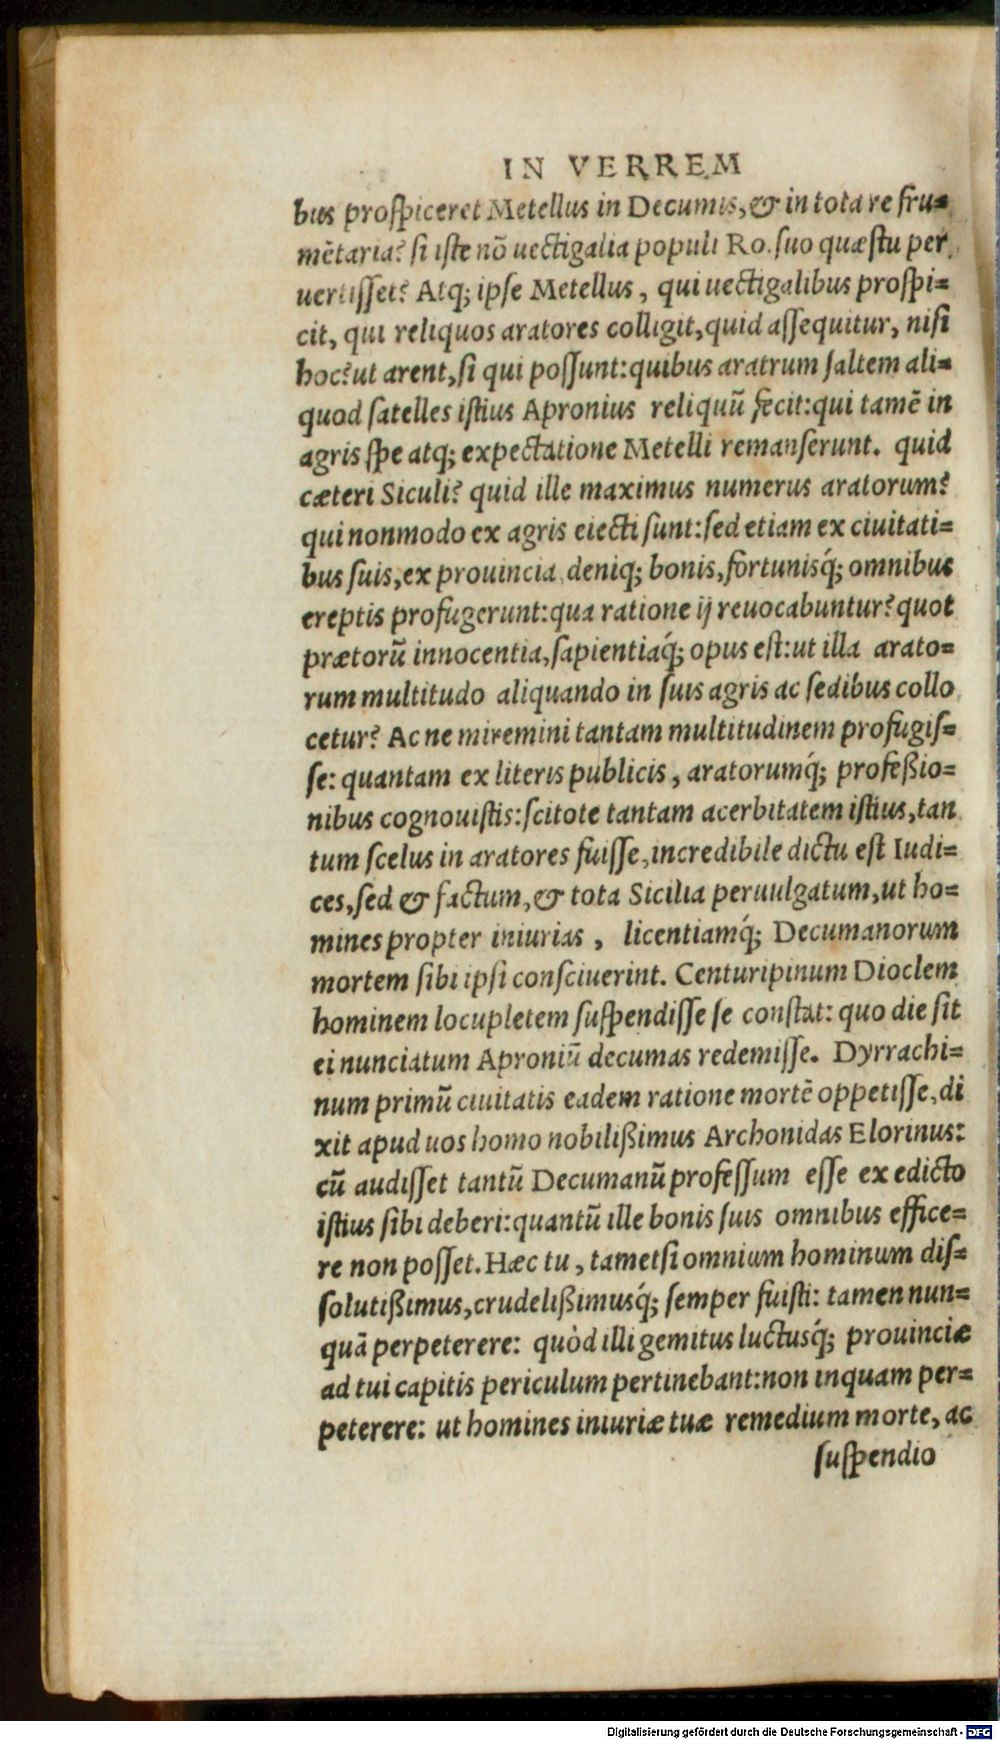 IN VERREM
bus proſpiceret Metellus in Decumis, & in tota re fru=
mētaria? ſi iſte nō uectigalia populi Ro. ſuo quæſtu per
uertiſſet? Atq; ipſe Metellus, qui uectigalibus proſpi=
cit, qui reliquos aratores colligit, quid aſſequitur, niſi
hoc? ut arent, ſi qui poſſunt: quibus aratrum ſaltem ali=
quod ſatelles iſtius Apronius reliquū fecit: qui tamē in
agris ſpe atq; expectatione Metelli remanſerunt. quid
cæteri Siculi? quid ille maximus numerus aratorum?
qui nonmodo ex agris eiecti ſunt: ſed etiam ex ciuitati=
bus ſuis, ex prouincia, deniq; bonis, fortunisq́; omnibus
ereptis profugerunt: qua ratione ij reuocabuntur? quot
prætorū innocentia, ſapientiaq́; opus eſt: ut illa arato=
rum multitudo aliquando in ſuis agris ac ſedibus collo
cetur? Ac ne miremini tantam multitudinem profugiſ=
ſe: quantam ex literis publicis, aratorumq́; profeßio=
nibus cognouiſtis: ſcitote tantam acerbitatem iſtius, tan
tum ſcelus in aratores fuiſſe, incredibile dictu eſt Iudi=
ces, ſed & factum, & tota Sicilia peruulgatum, ut ho=
mines propter iniurias, licentiamq́; Decumanorum
mortem ſibi ipſi conſciuerint. Centuripinum Dioclem
hominem locupletem ſuſpendiſſe ſe conſtat: quo die ſit
ei nunciatum Aproniū decumas redemiſſe. Dyrrachi=
num primū ciuitatis eadem ratione mortē oppetiſſe, di
xit apud uos homo nobilißimus Archonidas Elorinus:
cū audiſſet tantū Decumanū profeſſum eſſe ex edicto
iſtius ſibi deberi: quantū ille bonis ſuis omnibus effice=
re non poſſet. Hæc tu, tametſi omnium hominum diſ=
ſolutißimus, crudelißimusq́; ſemper fuiſti: tamen nun=
quā perpeterere: quòd illi gemitus luctusq́; prouinciæ
ad tui capitis periculum pertinebant: non inquam per=
peterere: ut homines iniuriæ tuæ remedium morte, ac
ſuſpendio
Digitalisierung gefördert durch die Deutsche Forschungsgemeinschaft - DFG